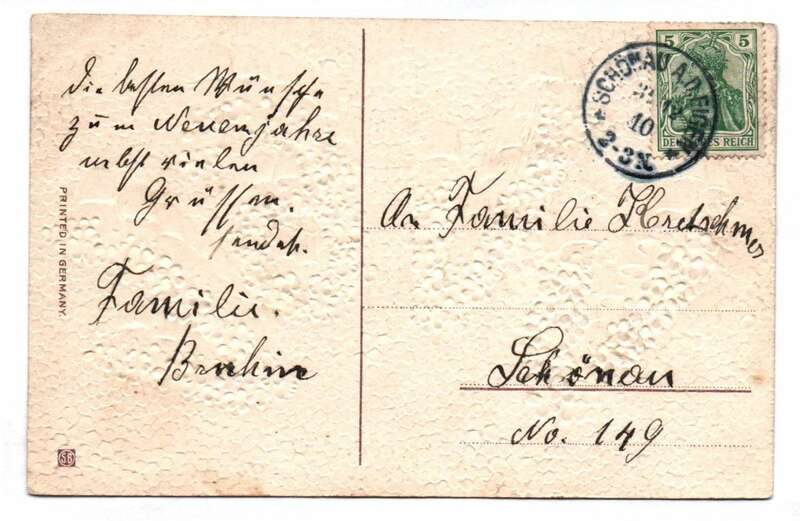 Die besten Wünsche
zum Neuenjahre
nebst vielen
Grüssen.
sendet.
Familie.
PRINTED IN GERMANY.
SB
5 5
DEUTSCHES REICH
SCHÖNAU
10
2-3N
An Familie Kretschmer
Schönau
No. 149